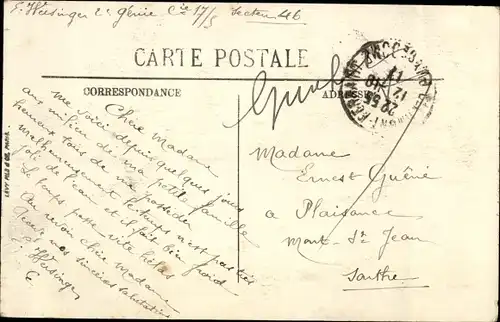 E. Heisinger 2e Génie Cie 17/5 Secteur 46
CARTE POSTALE
CORRESPONDANCE
ADRESSE
Chère Madame
me voici depuis quelques jours
au milieu de ma petite famille
heureux tous de me posséder
malheureusement le temps n'est pas très
joli de l'eau et il fait bien froid
Le temps passe vite hélas
Au revoir chère Madame
nos sincères salutations
E. Heisinger
Madame
Ernest Guérié
à Plaisance
Mont St Jean
Sarthe